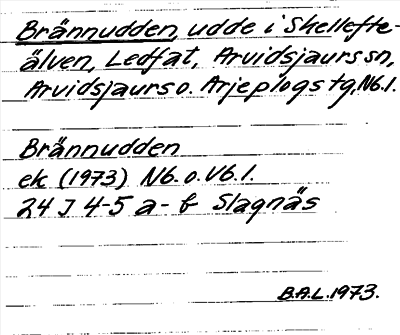 Brännudden, udde i Skellefte-
älven, Ledfat, Arvidsjaurs sn,
Arvidsjaurs o. Arjeplogs tg, Nb.l.
Brännudden
ek (1973) Nb. o. Vb. l.
24 J 4-5 a-b Slagnäs
B.A.L. 1973.